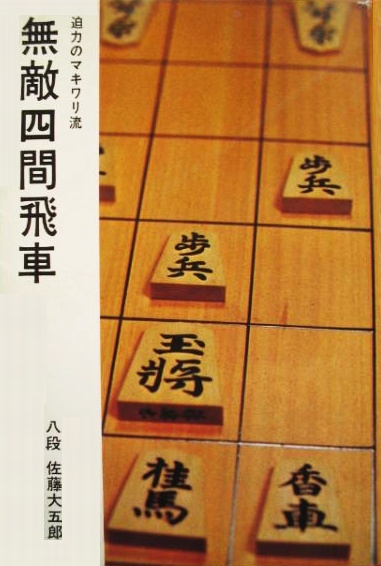 迫力のマキワリ流
無敵四間飛車
八段 佐藤大五郎
歩兵
歩兵
玉将
桂馬
香車